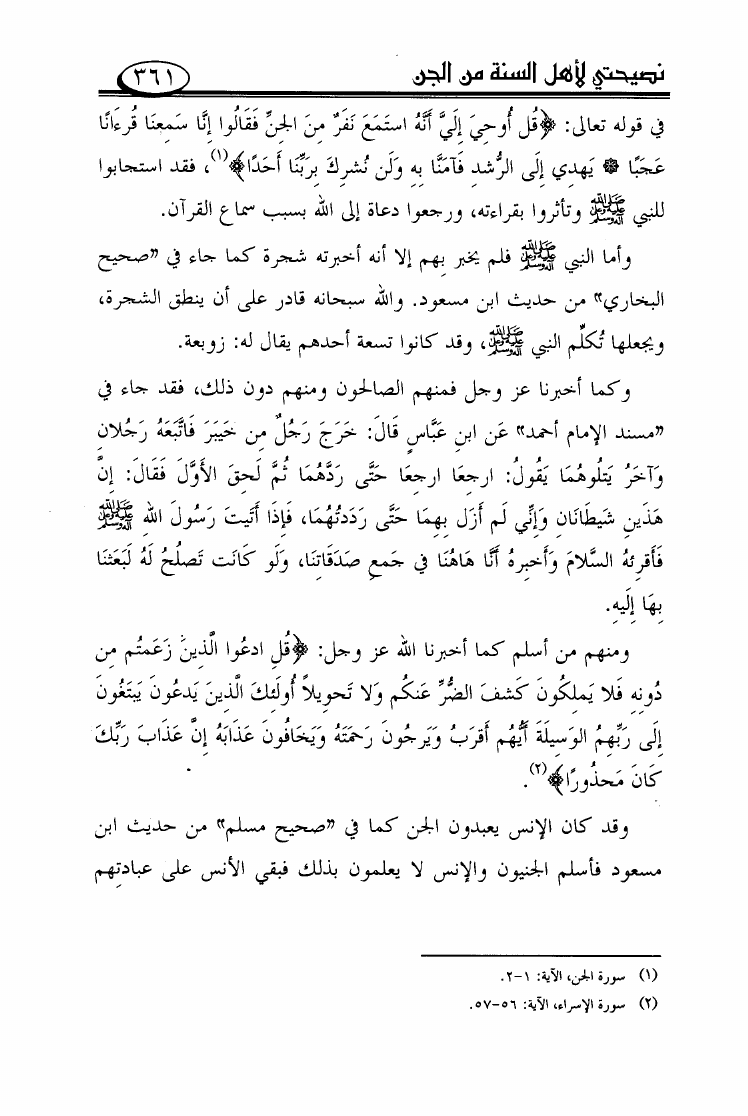 نصيحتي لأهل السنة من الجن ٣٦١
في قوله تعالى: ﴿قُل أُوحِيَ إِلَيَّ أَنَّهُ استَمَعَ نَفَرٌ مِنَ الجِنِّ فَقَالُوا إِنَّا سَمِعنَا قُرءَانًا
عَجَبًا ۞ يَهدِي إِلَى الرُّشدِ فَآمَنَّا بِهِ وَلَن نُشرِكَ بِرَبِّنَا أَحَدًا﴾(١)، فقد استجابوا
للنبي ﷺ وتأثروا بقراءته، ورجعوا دعاة إلى الله بسبب سماع القرآن.
وأما النبي ﷺ فلم يخبر بهم إلا أنه أخبرته شجرة كما جاء في «صحيح
البخاري» من حديث ابن مسعود. والله سبحانه قادر على أن ينطق الشجرة،
ويجعلها تُكلِّم النبي ﷺ، وقد كانوا تسعة أحدهم يقال له: زوبعة.
وكما أخبرنا عز وجل فمنهم الصالحون ومنهم دون ذلك، فقد جاء في
«مسند الإمام أحمد» عَن ابنِ عَبَّاسٍ قَالَ: خَرَجَ رَجُلٌ مِن خَيبَرَ فَاتَّبَعَهُ رَجُلانِ
وَآخَرُ يَتلُوهُمَا يَقُولُ: ارجِعَا ارجِعَا حَتَّى رَدَّهُمَا ثُمَّ لَحِقَ الأَوَّلَ فَقَالَ: إِنَّ
هَذَينِ شَيطَانَانِ وَإِنِّي لَم أَزَل بِهِمَا حَتَّى رَدَدتُهُمَا، فَإِذَا أَتَيتَ رَسُولَ اللهِ ﷺ
فَأَقرِئهُ السَّلَامَ وَأَخبِرهُ أَنَّا هَاهُنَا فِي جَمعِ صَدَقَاتِنَا، وَلَو كَانَت تَصلُحُ لَهُ لَبَعَثنَا
بِهَا إِلَيهِ.
ومنهم من أسلم كما أخبرنا الله عز وجل: ﴿قُلِ ادعُوا الَّذِينَ زَعَمتُم مِن
دُونِهِ فَلا يَملِكُونَ كَشفَ الضُّرِّ عَنكُم وَلا تَحوِيلاً أُولَئِكَ الَّذِينَ يَدعُونَ يَبتَغُونَ
إِلَى رَبِّهِمُ الوَسِيلَةَ أَيُّهُم أَقرَبُ وَيَرجُونَ رَحمَتَهُ وَيَخَافُونَ عَذَابَهُ إِنَّ عَذَابَ رَبِّكَ
كَانَ مَحذُورًا﴾(٢).
وقد كان الإنس يعبدون الجن كما في «صحيح مسلم» من حديث ابن
مسعود فأسلم الجنيون والإنس لا يعلمون بذلك فبقي الأنس على عبادتِهم
(١) سورة الجن، الآية: ١-٢.
(٢) سورة الإسراء، الآية: ٥٦-٥٧.